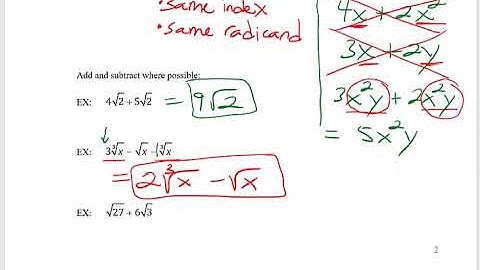 • same index
• same radicand
4x + 2x²
3x + 2y
3x²y + 2x²y
= 5x²y
Add and subtract where possible:
EX: 4√2 + 5√2 = 9√2
EX: 3∛x − √x − 1∛x
= 2∛x − √x
EX: √27 + 6√3
2